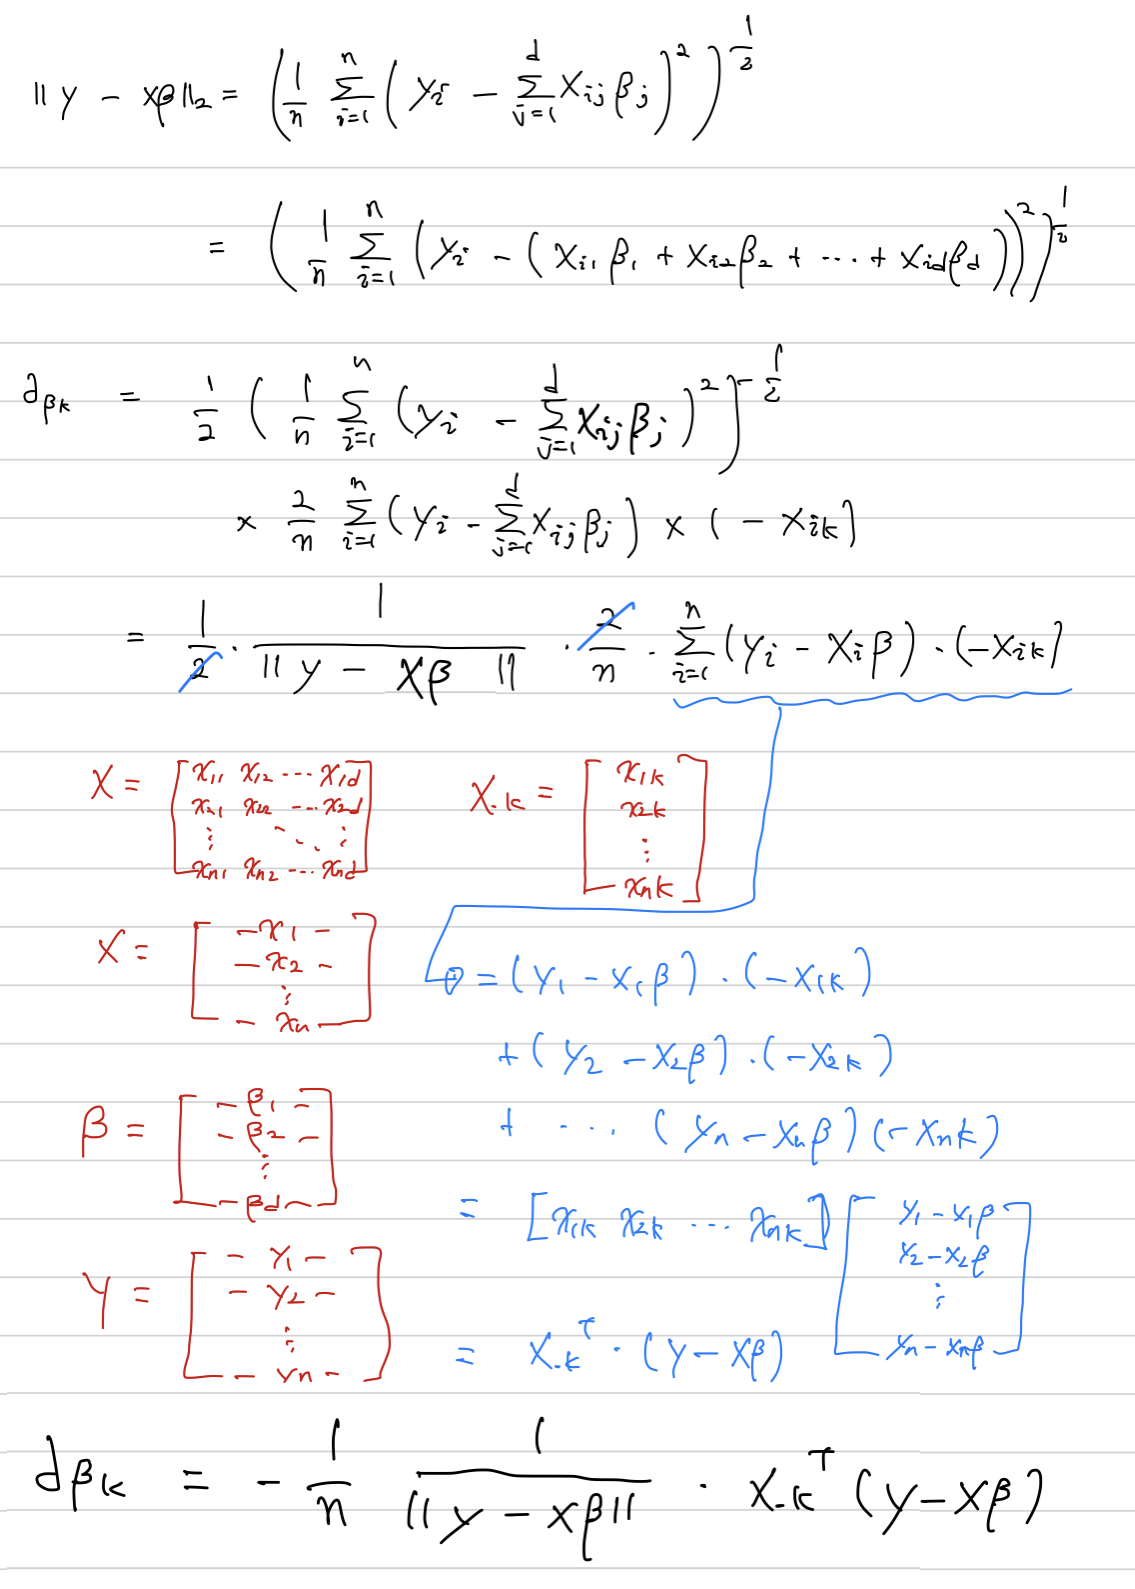 ‖y − xβ‖₂ = (1/n Σ_{i=1}^{n} (y_i − Σ_{j=1}^{d} x_{ij} β_j)²)^{1/2}
= (1/n Σ_{i=1}^{n} (y_i − (x_{i1} β_1 + x_{i2} β_2 + ⋯ + x_{id} β_d))²)^{1/2}
∂_{βk} = 1/2 (1/n Σ_{i=1}^{n} (y_i − Σ_{j=1}^{d} x_{ij} β_j)²)^{−1/2}
× 2/n Σ_{i=1}^{n} (y_i − Σ_{j=1}^{d} x_{ij} β_j) × (−x_{ik})
= 1/2 · 1/‖y − xβ‖ · 2/n · Σ_{i=1}^{n} (y_i − x_i β) · (−x_{ik})
X = [x_{11} x_{12} ⋯ x_{1d}
x_{21} x_{22} ⋯ x_{2d}
⋮ ⋱ ⋮
x_{n1} x_{n2} ⋯ x_{nd}]
X_{·k} = [x_{1k}
x_{2k}
⋮
x_{nk}]
X = [− x_1 −
− x_2 −
⋮
− x_n −]
β = [− β_1 −
− β_2 −
⋮
− β_d −]
Y = [− y_1 −
− y_2 −
⋮
− y_n −]
= (y_1 − x_1 β) · (−x_{1k})
+ (y_2 − x_2 β) · (−x_{2k})
+ ⋯ (y_n − x_n β) (−x_{nk})
= [x_{1k} x_{2k} ⋯ x_{nk}] [y_1 − x_1 β
y_2 − x_2 β
⋮
y_n − x_n β]
= X_{·k}^T · (y − xβ)
∂_{βk} = − 1/n 1/‖y − xβ‖ · X_{·k}^T (y − xβ)